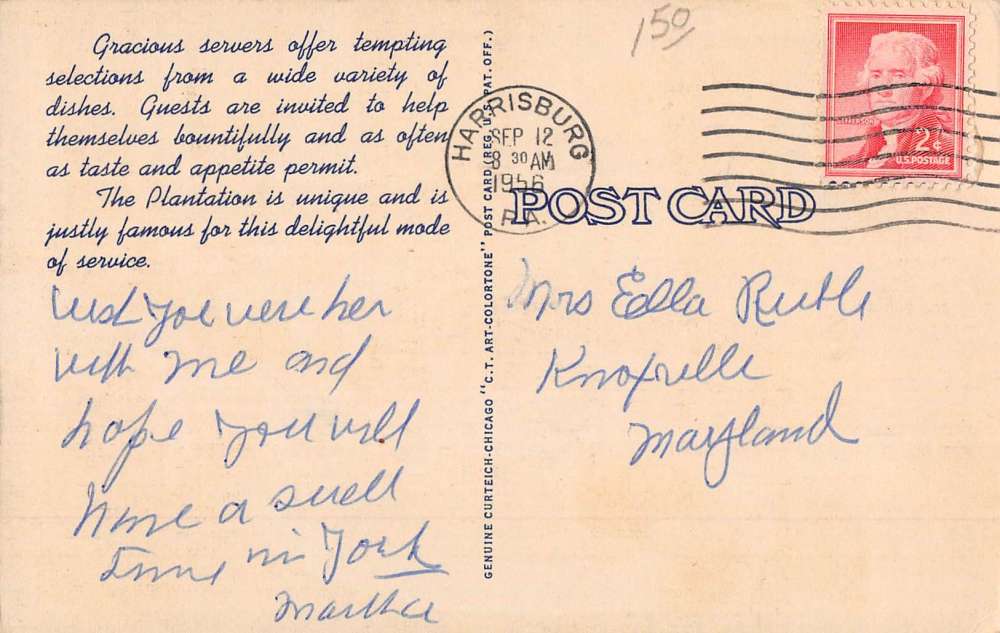 Gracious servers offer tempting
selections from a wide variety of
dishes. Guests are invited to help
themselves bountifully and as often
as taste and appetite permit.
The Plantation is unique and is
justly famous for this delightful mode
of service.
wish you were her
with me and
hope you will
have a swell
time in York
Martha
GENUINE CURTEICH-CHICAGO "C.T. ART-COLORTONE" POST CARD (REG. U.S. PAT. OFF.)
150
HARRISBURG
SEP 12
8 30 AM
1956
PA.
JEFFERSON
2¢
U.S. POSTAGE
POST CARD
Mrs Edla Ruble
Knoxville
Maryland